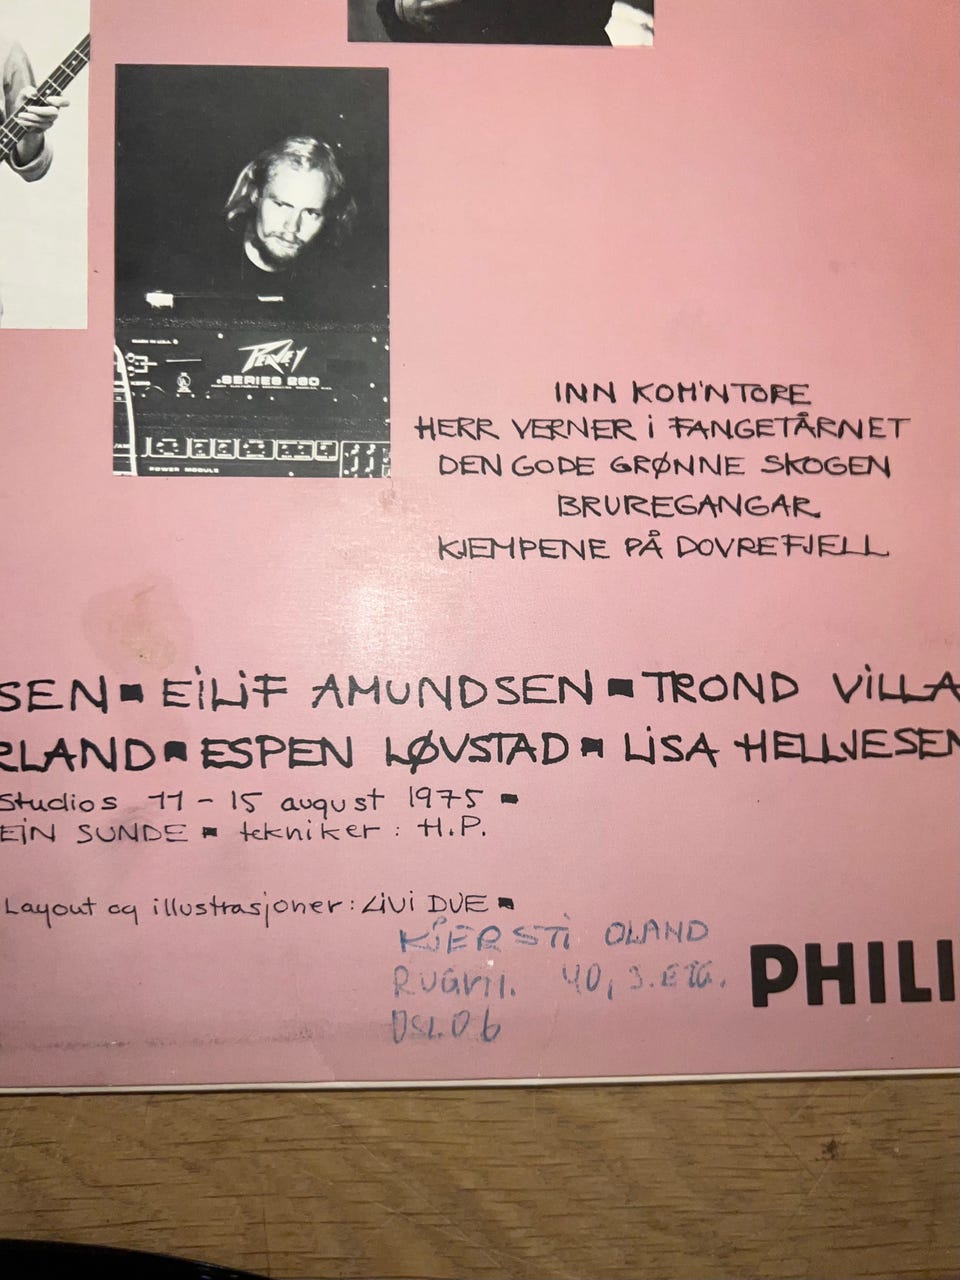 MADE IN U.S.A.
PEAVEY
SERIES 260
POWER MODULE
INN KOM'N TORE
HERR VERNER i FANGETÅRNET
DEN GODE GRØNNE SKOGEN
BRUREGANGAR
KJEMPENE PÅ DOVREFJELL
SEN ▪ EiLiF AMUNDSEN ▪ TROND ViLLA
RLAND ▪ ESPEN LØVSTAD ▪ LiSA HELLJESEN
Studios 11 - 15 august 1975 ▪
EiN SUNDE ▪ tekniker : H.P.
Layout og illustrasjoner: LiVi DUE ▪
KJERSTi OLAND
40, 3. ETG.
OSLO 6
PHILI